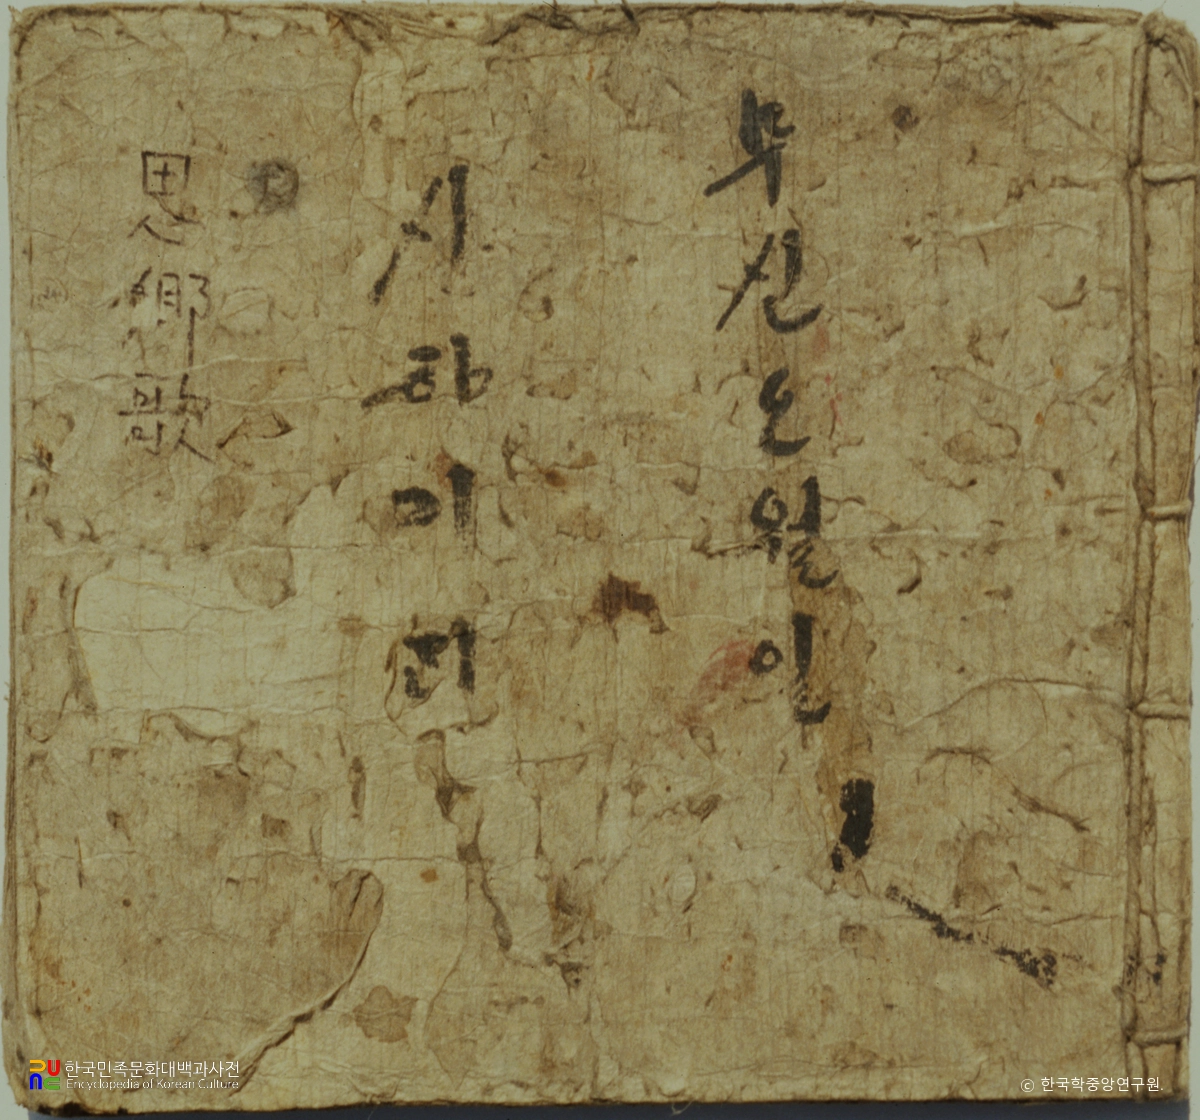 무신오월일
사하미뎐
思鄕歌
한국민족문화대백과사전
Encyclopedia of Korean Culture
© 한국학중앙연구원.